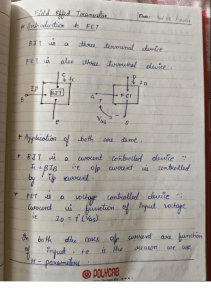 Field Effect Transistor
* Introduction to FET
BJT is a three terminal device.
FET is also three terminal device.
C
IB
B
BJT
E
D
ID
G
FET
VGS
S
* Application of both are same.
* BJT is a current controlled device
IC = βIB i.e o/p current is controlled
by I/p current.
* FET is a voltage controlled device
current is function of Input voltage
ie ID = f(VGS)
In both the case o/p current are function
of input, i.e is the reason we use
H-parameters
POLYCAB